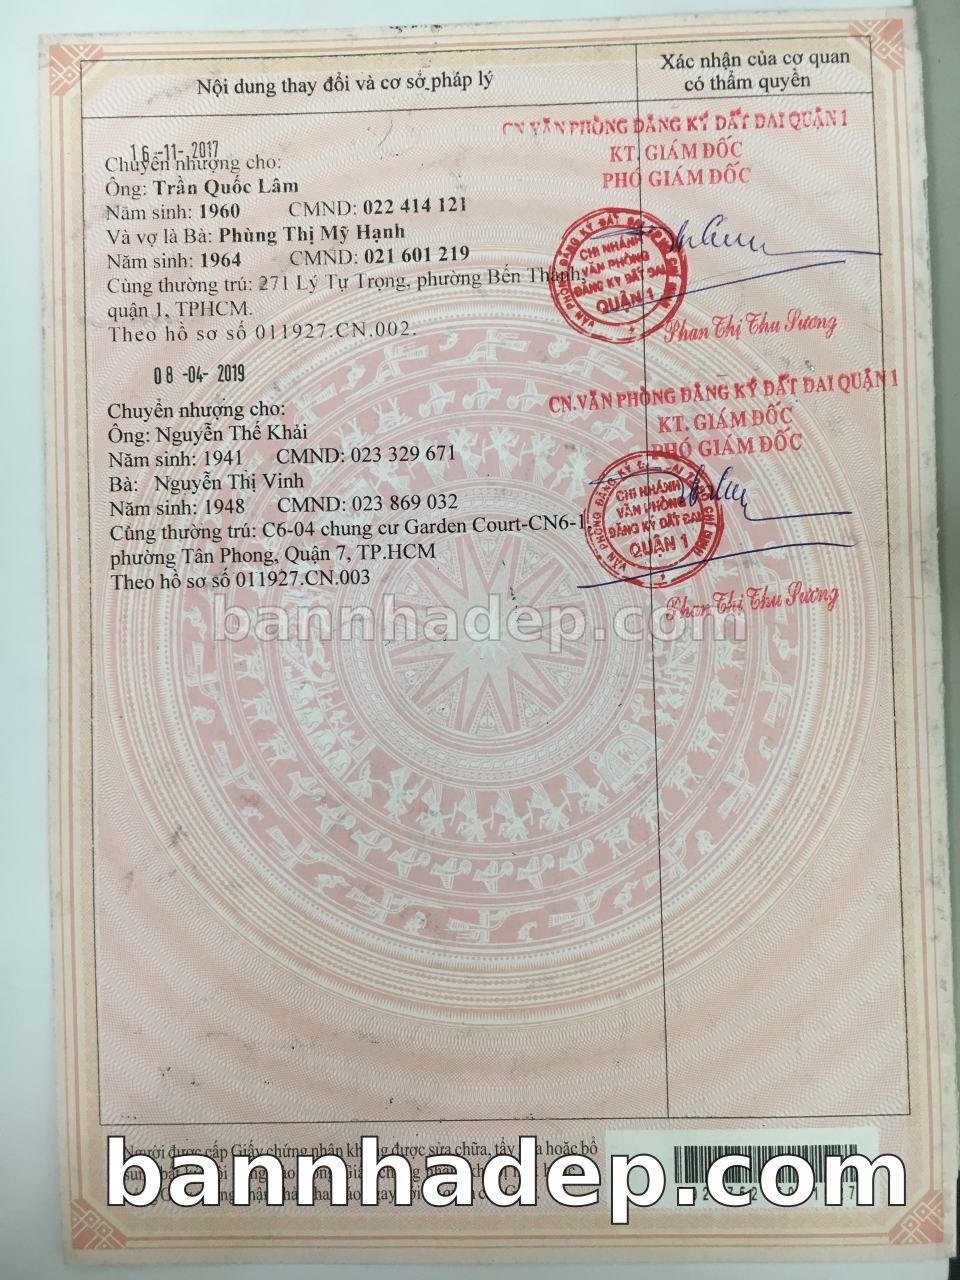 Nội dung thay đổi và cơ sở pháp lý
Xác nhận của cơ quan
có thẩm quyền
16-11-2017
Chuyển nhượng cho:
Ông: Trần Quốc Lâm
Năm sinh: 1960 CMND: 022 414 121
Và vợ là Bà: Phùng Thị Mỹ Hạnh
Năm sinh: 1964 CMND: 021 601 219
Cùng thường trú: 271 Lý Tự Trọng, phường Bến Thành,
quận 1, TPHCM.
Theo hồ sơ số 011927.CN.002.
CN VĂN PHÒNG ĐĂNG KÝ ĐẤT ĐAI QUẬN 1
KT. GIÁM ĐỐC
PHÓ GIÁM ĐỐC
CHI NHÁNH
VĂN PHÒNG
ĐĂNG KÝ ĐẤT ĐAI
QUẬN 1
Phan Thị Thu Sương
08-04-2019
Chuyển nhượng cho:
Ông: Nguyễn Thế Khải
Năm sinh: 1941 CMND: 023 329 671
Bà: Nguyễn Thị Vinh
Năm sinh: 1948 CMND: 023 869 032
Cùng thường trú: C6-04 chung cư Garden Court-CN6-1,
phường Tân Phong, Quận 7, TP.HCM
Theo hồ sơ số 011927.CN.003
CN.VĂN PHÒNG ĐĂNG KÝ ĐẤT ĐAI QUẬN 1
KT. GIÁM ĐỐC
PHÓ GIÁM ĐỐC
CHI NHÁNH
VĂN PHÒNG
ĐĂNG KÝ ĐẤT ĐAI
QUẬN 1
Phan Thị Thu Sương
bannhadep.com
Người được cấp Giấy chứng nhận không được sửa chữa, tẩy xóa hoặc bổ
bannhadep.com